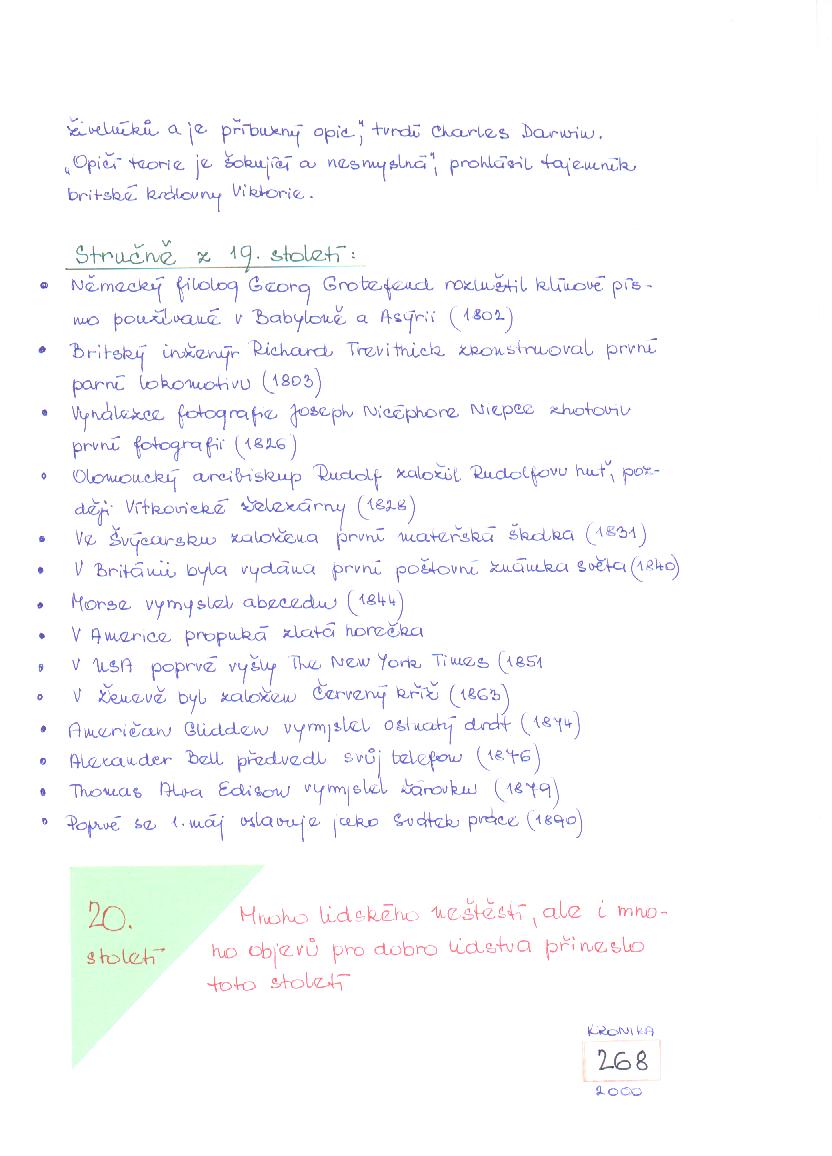 živelníků a je příbuzný opic“, tvrdí Charles Darwin.
„Opičí teorie je šokující a nesmyslná“, prohlásil tajemník
britské královny Viktorie.
Stručně z 19. století:
• Německý filolog Georg Grotefend rozluštil klínové pís-
mo používané v Babyloně a Asýrii (1802)
• Britský inženýr Richard Trevithick zkonstruoval první
parní lokomotivu (1803)
• Vynálezce fotografie Joseph Nicéphore Niepce zhotovil
první fotografii (1826)
• Olomoucký arcibiskup Rudolf založil Rudolfovu huť, poz-
ději Vítkovické železárny (1828)
• Ve Švýcarsku založena první mateřská školka (1831)
• V Británii byla vydána první poštovní známka světa (1840)
• Morse vymyslel abecedu (1844)
• V Americe propuká zlatá horečka
• V USA poprvé vyšly The New York Times (1851
• V Ženevě byl založen Červený kříž (1863)
• Američan Glidden vymyslel ostnatý drát (1874)
• Alexander Bell předvedl svůj telefon (1876)
• Thomas Alva Edison vymyslel žárovku (1879)
• Poprvé se 1. máj oslavuje jako Svátek práce (1890)
20.
století
Mnoho lidského neštěstí, ale i mno-
ho objevů pro dobro lidstva přineslo
toto století
KRONIKA
268
2000